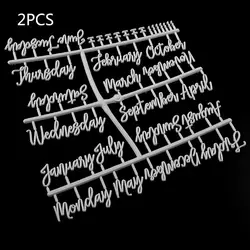 2PCS
Tuesday June
Thursday
February October
March November
Saturday
Wednesday
September April
January July
August Sunday
Monday May December Friday